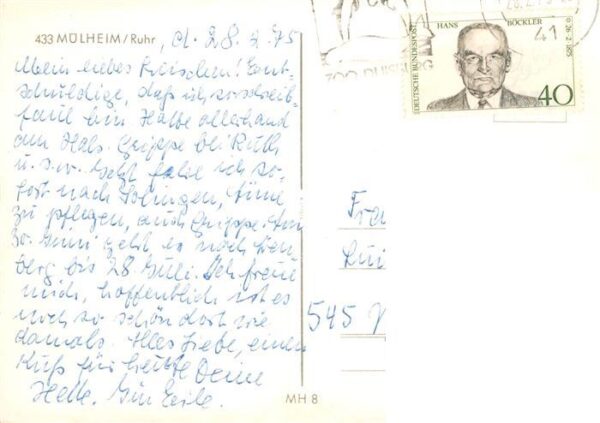 433 MÜLHEIM/Ruhr, d. 28. 2. 75
Mein liebes! Ent-
schuldige, daß ich so schreib-
faul bin. Habe allerhand
am Hals. Grippe bei Ruth
u. s. w. Jetzt fahre ich so-
fort nach Solingen,
zu pflegen, auch Grippe. Am
30. Juni geht es nach
berg bis 28. Juli. Ich freue
mich, hoffentlich ist es
noch so schön dort wie
damals. Alles Liebe, einen
Kuß für heute Deine
Helle. In Eile.
MH 8
ZOO DUISBURG
DEUTSCHE BUNDESPOST
HANS BÖCKLER
* 26·2·1875
41
40
Fra
Lui
545